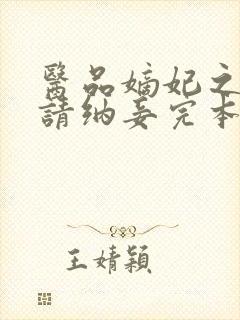 醫品嫡妃之
請納妾完本
王婧穎